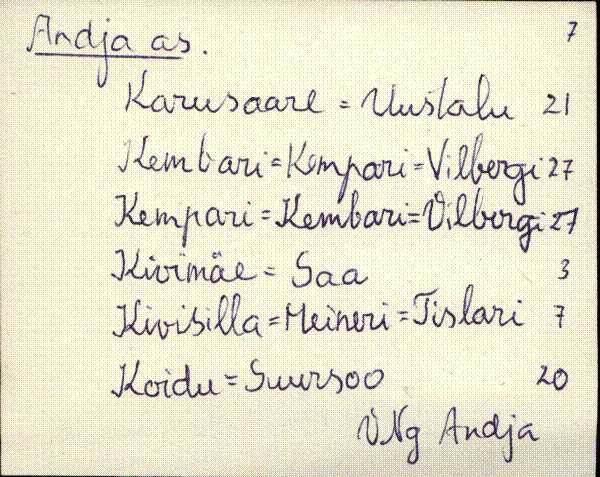 Andja as. 7
Karusaare = Uustalu 21
Kembari = Kempari = Vilbergi 27
Kempari = Kembari = Vilbergi 27
Kivimäe = Saa 3
Kivisilla = Meineri = Tislari 7
Koidu = Suursoo 20
VNg Andja